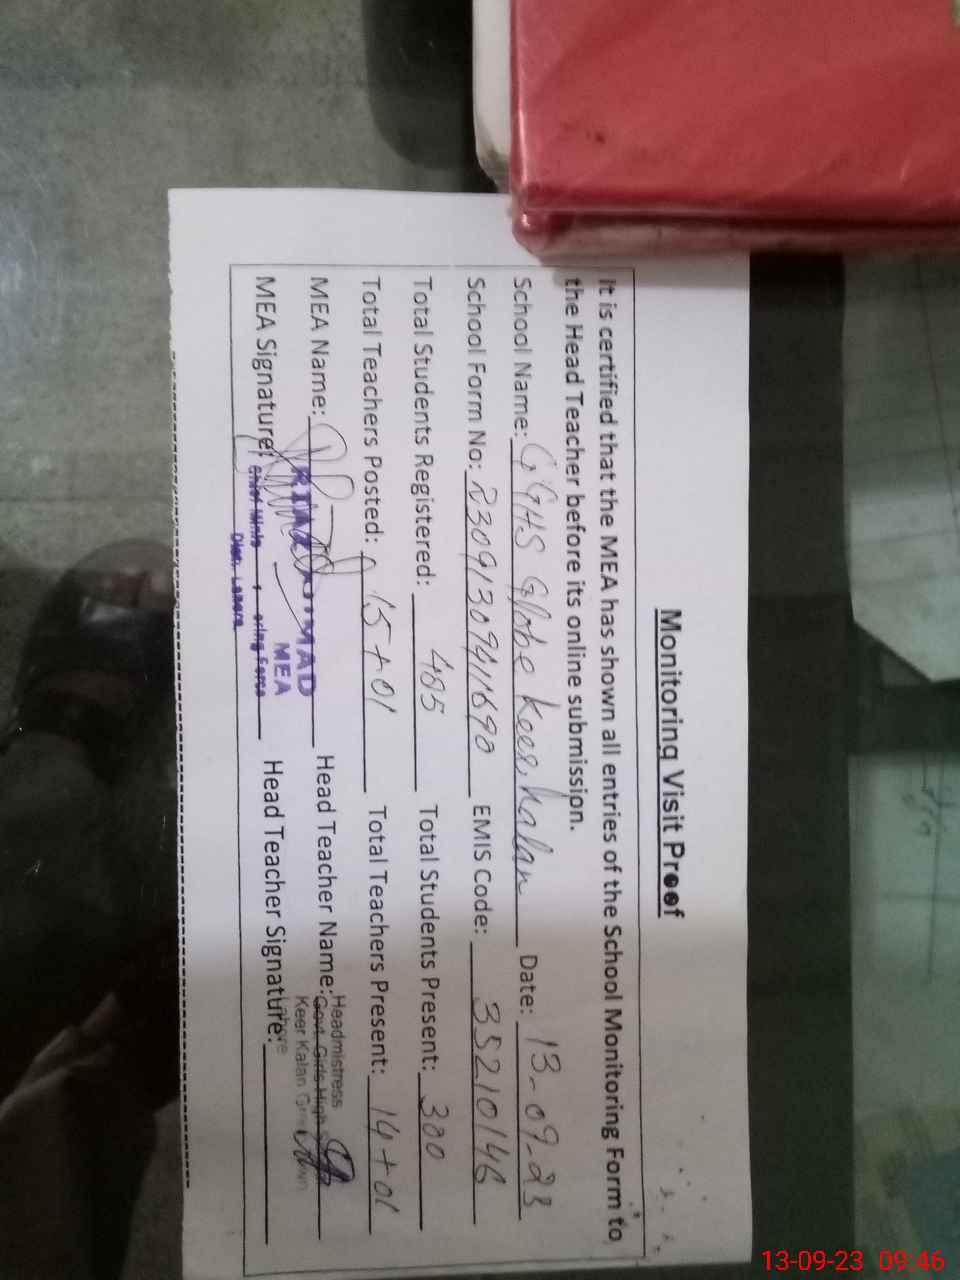 Monitoring Visit Proof
It is certified that the MEA has shown all entries of the School Monitoring Form to
the Head Teacher before its online submission.
School Name: GGHS Globe keer kalan Date: 13-09-23
School Form No: 2309130941690 EMIS Code: 35210146
Total Students Registered: 485 Total Students Present: 380
Total Teachers Posted: 15+01 Total Teachers Present: 14+01
MEA Name: Head Teacher Name: Headmistress
Govt. Girls High
Keer Kalan
Lahore
MEA
MEA Signature: Head Teacher Signature:
Distt. Lahore
13-09-23 09:46